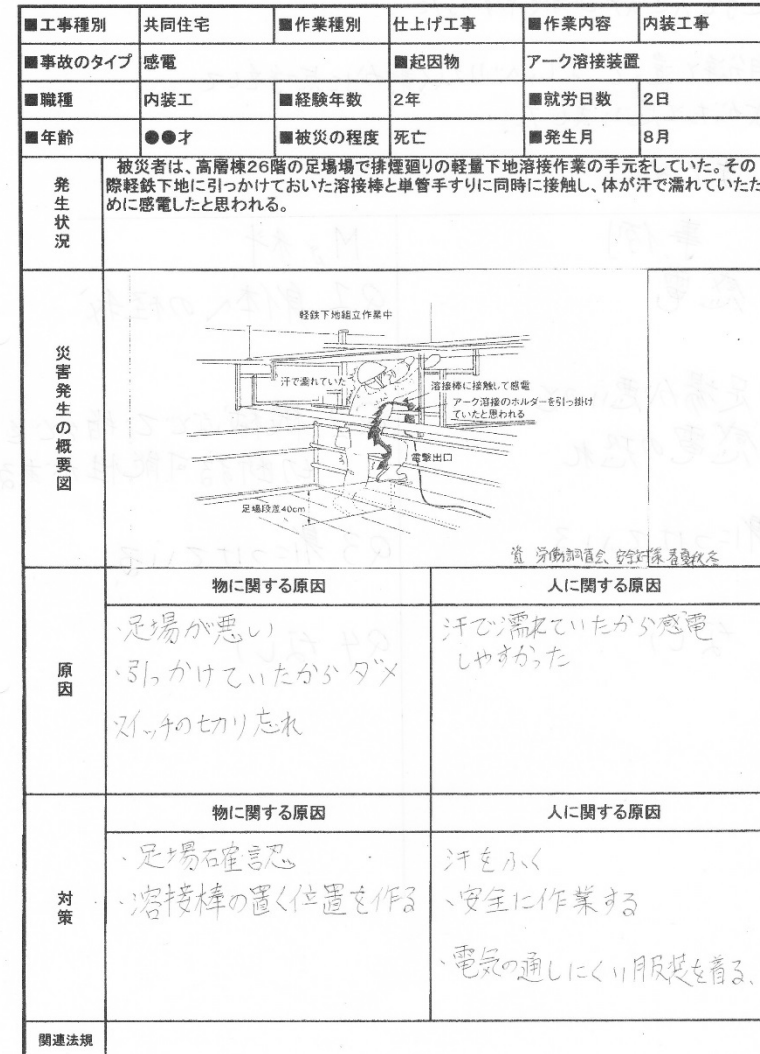 ■工事種別 共同住宅 ■作業種別 仕上げ工事 ■作業内容 内装工事
■事故のタイプ 感電 ■起因物 アーク溶接装置
■職種 内装工 ■経験年数 2年 ■就労日数 2日
■年齢 ●●才 ■被災の程度 死亡 ■発生月 8月
発生状況
被災者は、高層棟26階の足場場で排煙廻りの軽量下地溶接作業の手元をしていた。その
際軽鉄下地に引っかけておいた溶接棒と単管手すりに同時に接触し、体が汗で濡れていたた
めに感電したと思われる。
災害発生の概要図
軽鉄下地組立作業中
汗で濡れていた
溶接棒に接触して感電
アーク溶接のホルダーを引っ掛け
ていたと思われる
電撃出口
足場段差40cm
労働調査会、安全対策春夏秋冬
原因
物に関する原因 人に関する原因
・足場が悪い
・引っかけていたからダメ
スイッチの切り忘れ
汗で濡れていたから感電
しやすかった
対策
物に関する原因 人に関する原因
・足場確認
・溶接棒の置く位置を作る
汗をふく
、安全に作業する
・電気の通しにくい服装を着る、
関連法規